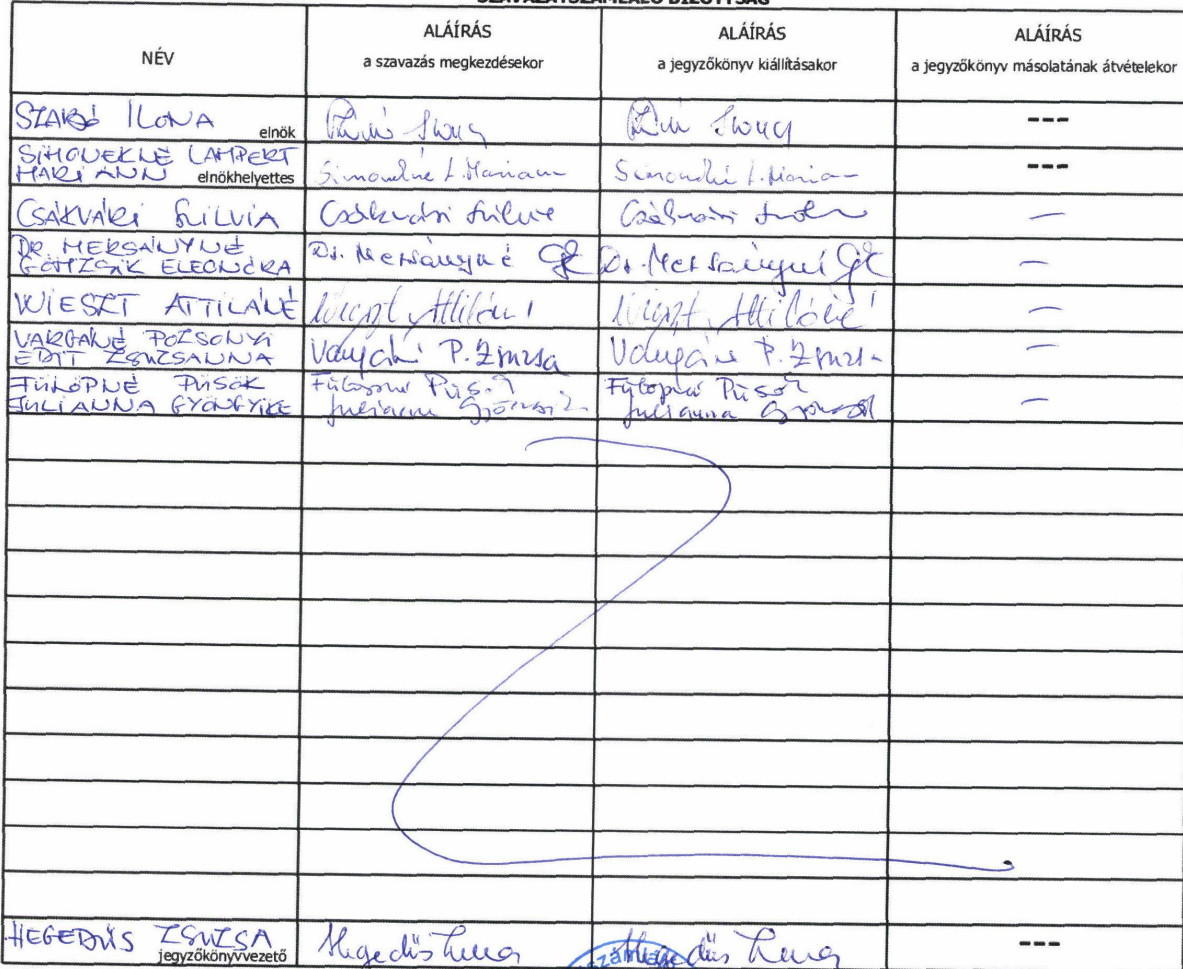 SZAVAZATSZÁMLÁLÓ BIZOTTSÁG
NÉV
ALÁÍRÁS
a szavazás megkezdésekor
ALÁÍRÁS
a jegyzőkönyv kiállításakor
ALÁÍRÁS
a jegyzőkönyv másolatának átvételekor
SZABÓ ILONA
elnök
---
SIMONEKNÉ LAMPERT
MARIANN
elnökhelyettes
Simonekné L. Mariann
Simonekné L. Mariann
---
CSÁKVÁRI SZILVIA
Csákvári Szilvia
Csákvári
—
DR. MERSÁNYNÉ
ELEONÓRA
Dr. Mersányné
Dr. Mersányné
—
WIESZT ATTILÁNÉ
Wieszt Attiláné
Wieszt Attiláné
—
VARGÁNÉ POZSONYI
EDIT ZSUZSANNA
Vargáné P. Zsuzsa
Vargáné P. Zsuzsa
—
FÜLÖPNÉ PUSÓK
JULIANNA GYÖNGYIKE
Fülöpné Pusók
Julianna
Fülöpné Pusók
Julianna
—
HEGEDŰS ZSUZSA
jegyzőkönyvvezető
Hegedűs Zsuzsa
Hegedűs Zsuzsa
---